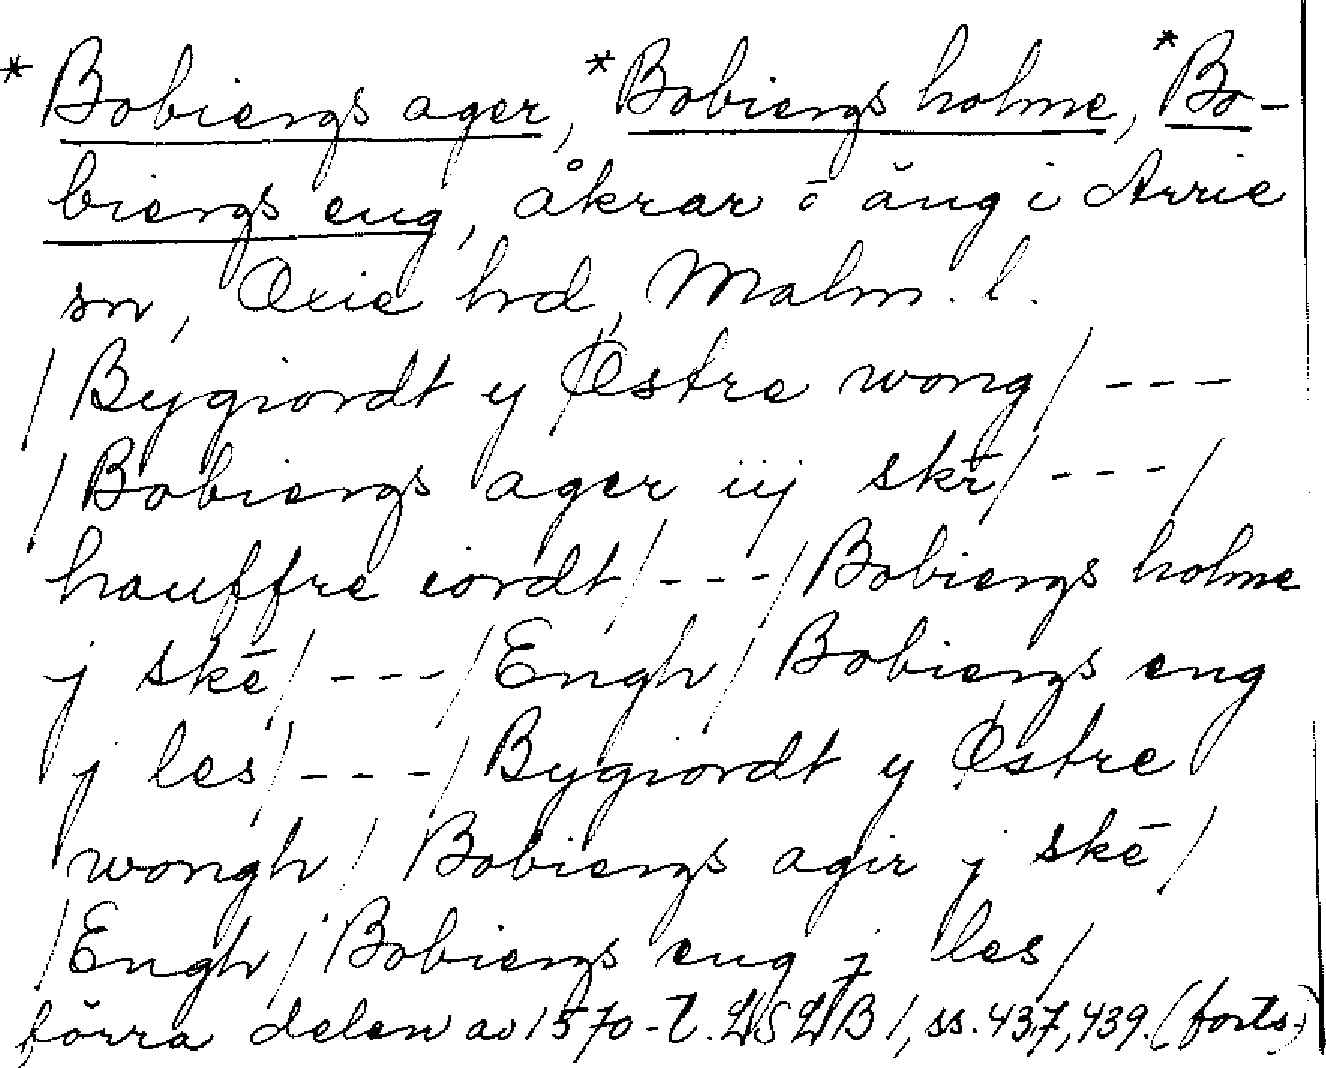 *Bobiergs ager, *Bobiergs holme, *Bo-
biergs eng, åkrar o äng i Arrie
sn, Oxie hrd, Malm. l.
/Bygiordt y Østre wong/ ---
/Bobiergs ager iij skē/ ---/
hauffre iordt/ ---/Bobiergs holme
j skē/ ---/Engh/ Bobiergs eng
j les/ ---/Bygiordt y Østre
wongh/ Bobiergs agir j skē/
/Engh/ Bobiergs eng j les/
förra delen av 1570-t. LSLB 1, ss. 437, 439. (forts.)